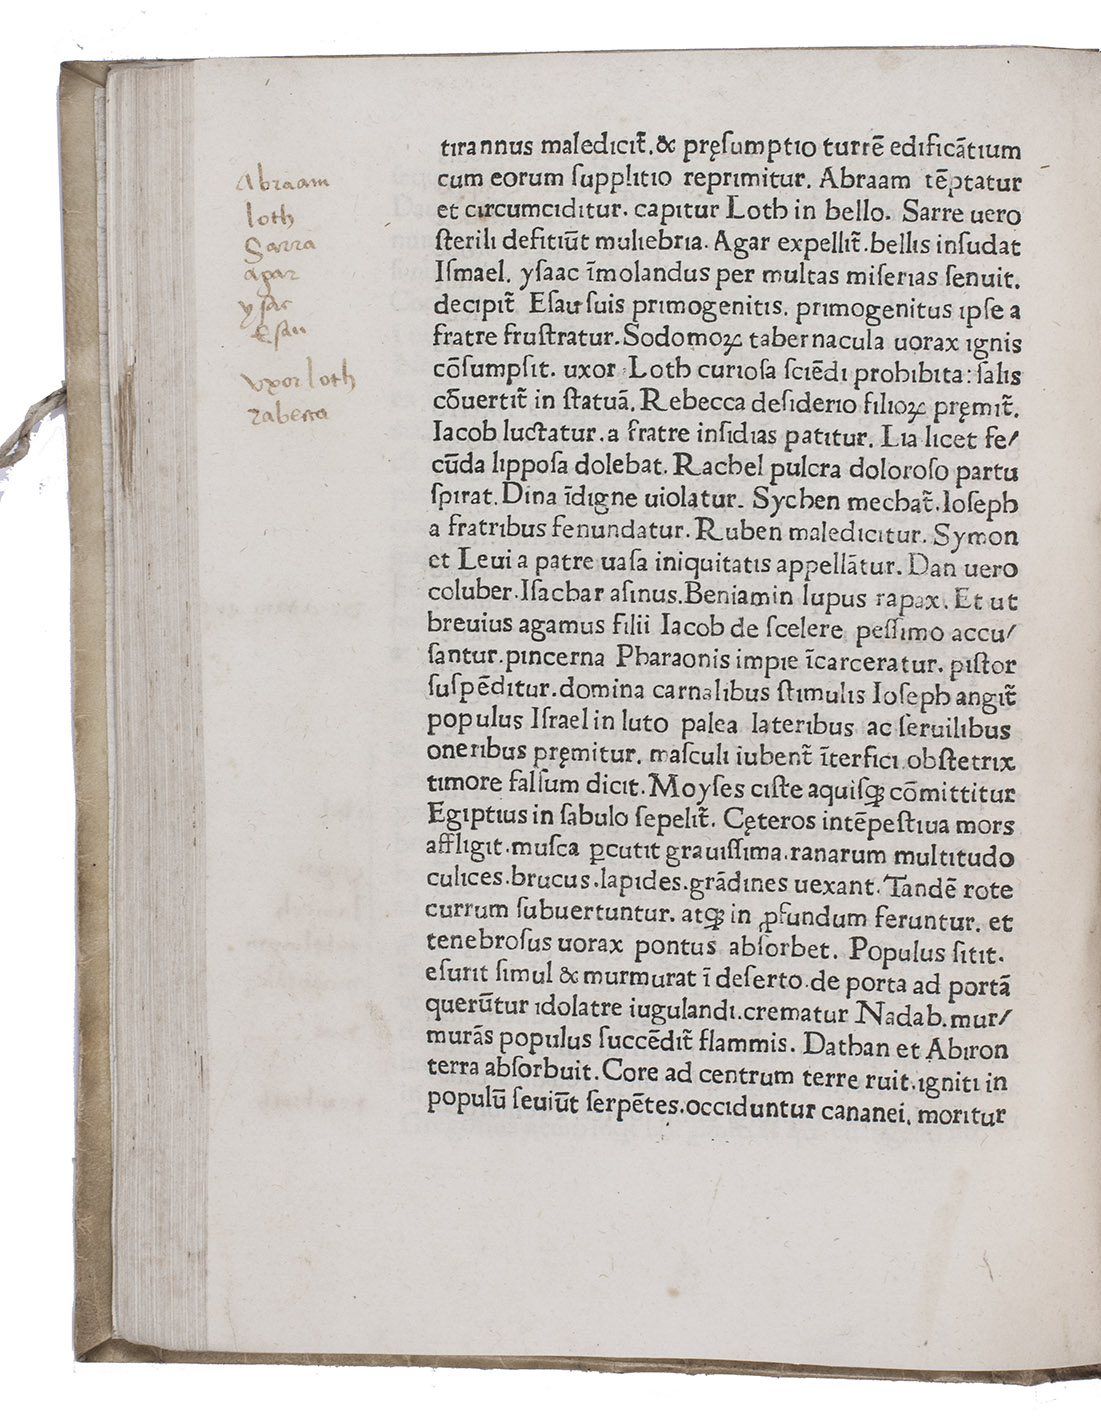 Abraam
loth
Sarra
agar
ysac
Esau
vxor loth
rabecca
tirannus maledicit̃.& pręſumptio turrē edificātium
cum eorum ſupplitio reprimitur. Abraam tēptatur
et circumciditur. capitur Loth in bello. Sarre uero
ſterili defitiūt muliebria. Agar expellit̃.bellis inſudat
Iſmael. yſaac īmolandus per multas miſerias ſenuit.
decipit̃ Eſau ſuis primogenitis. primogenitus ipſe a
fratre fruſtratur. Sodomoꝝ tabernacula uorax ignis
cōſumpſit. uxor Loth curioſa ſciēdi prohibita: ſalis
cōuertit̃ in ſtatuā. Rebecca deſiderio filioꝝ pręmit̃.
Iacob luctatur.a fratre inſidias patitur. Lia licet fe/
cūda lippoſa dolebat. Rachel pulcra doloroſo partu
ſpirat. Dina īdigne uiolatur. Sychen mechat̃.Ioſeph
a fratribus fenundatur. Ruben maledicitur. Symon
et Leui a patre uaſa iniquitatis appellātur. Dan uero
coluber.Iſachar aſinus.Beniamin lupus rapax. Et ut
breuius agamus filii Iacob de ſcelere peſſimo accu/
ſantur.pincerna Pharaonis impie īcarceratur. piſtor
ſuſpēditur.domina carnalibus ſtimulis Ioſeph angit̃
populus Iſrael in luto palea lateribus ac ſeruilibus
oneribus pręmitur. maſculi iubent̃ īterfici obſtetrix
timore falſum dicit. Moyſes ciſte aquiſꝗ cōmittitur
Egiptius in ſabulo ſepelit̃. Cęteros intēpeſtiua mors
affligit.muſca ꝑcutit grauiſſima.ranarum multitudo
culices.brucus.lapides.grādines uexant. Tandē rote
currum ſubuertuntur. atꝗ in ꝓfundum feruntur. et
tenebroſus uorax pontus abſorbet. Populus ſitit.
eſurit ſimul & murmurat ī deſerto.de porta ad portā
querūtur idolatre iugulandi.crematur Nadab.mur/
murās populus ſuccēdit̃ flammis. Dathan et Abiron
terra abſorbuit. Core ad centrum terre ruit.igniti in
populū ſeuiūt ſerpētes.occiduntur cananei. moritur